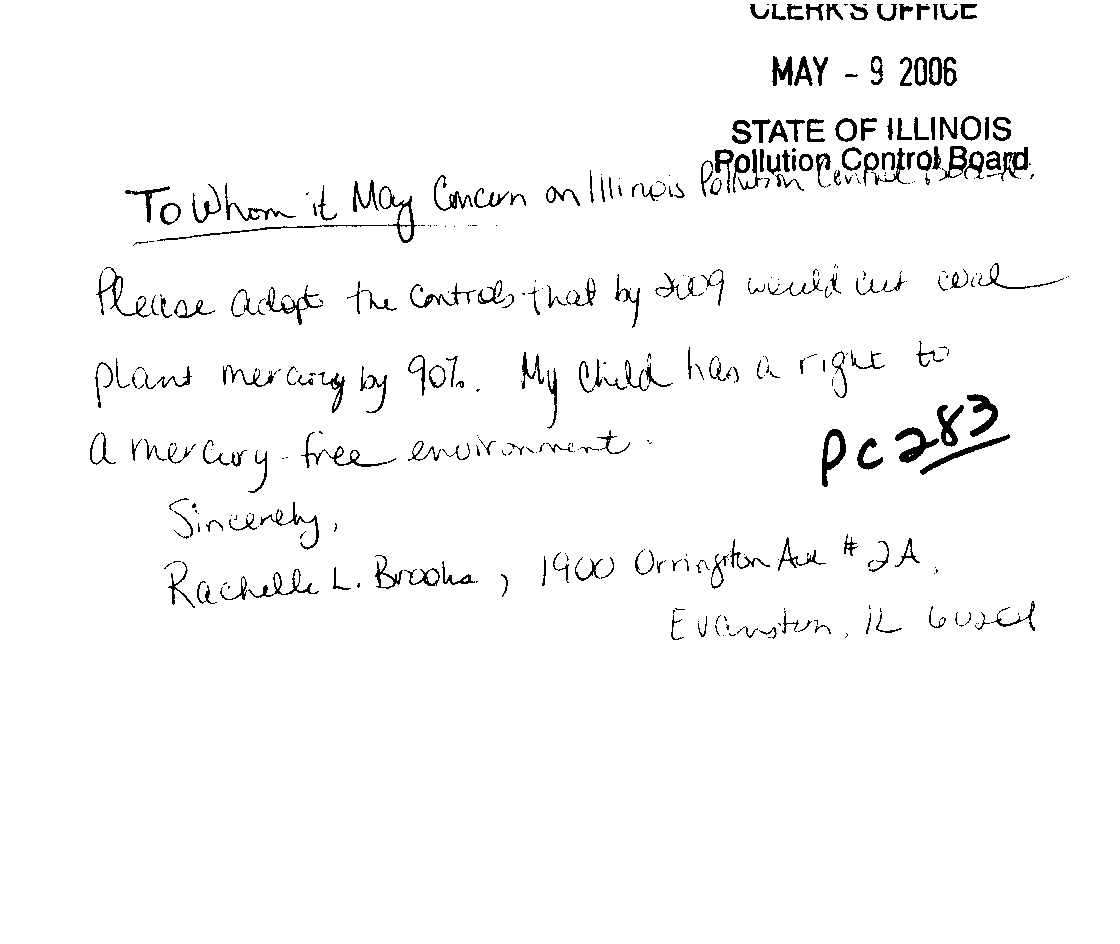 CLERK'S OFFICE
MAY - 9 2006
STATE OF ILLINOIS
Pollution Control Board
To Whom it May Concern on Illinois Pollution Control Board.
Please adopt the controls that by 2009 would cut coal
plant mercury by 90%. My child has a right to
a mercury-free environment.
PC 283
Sincerely,
Rachelle L. Brooks, 1900 Orrington Ave #2A,
Evanston, IL 60201